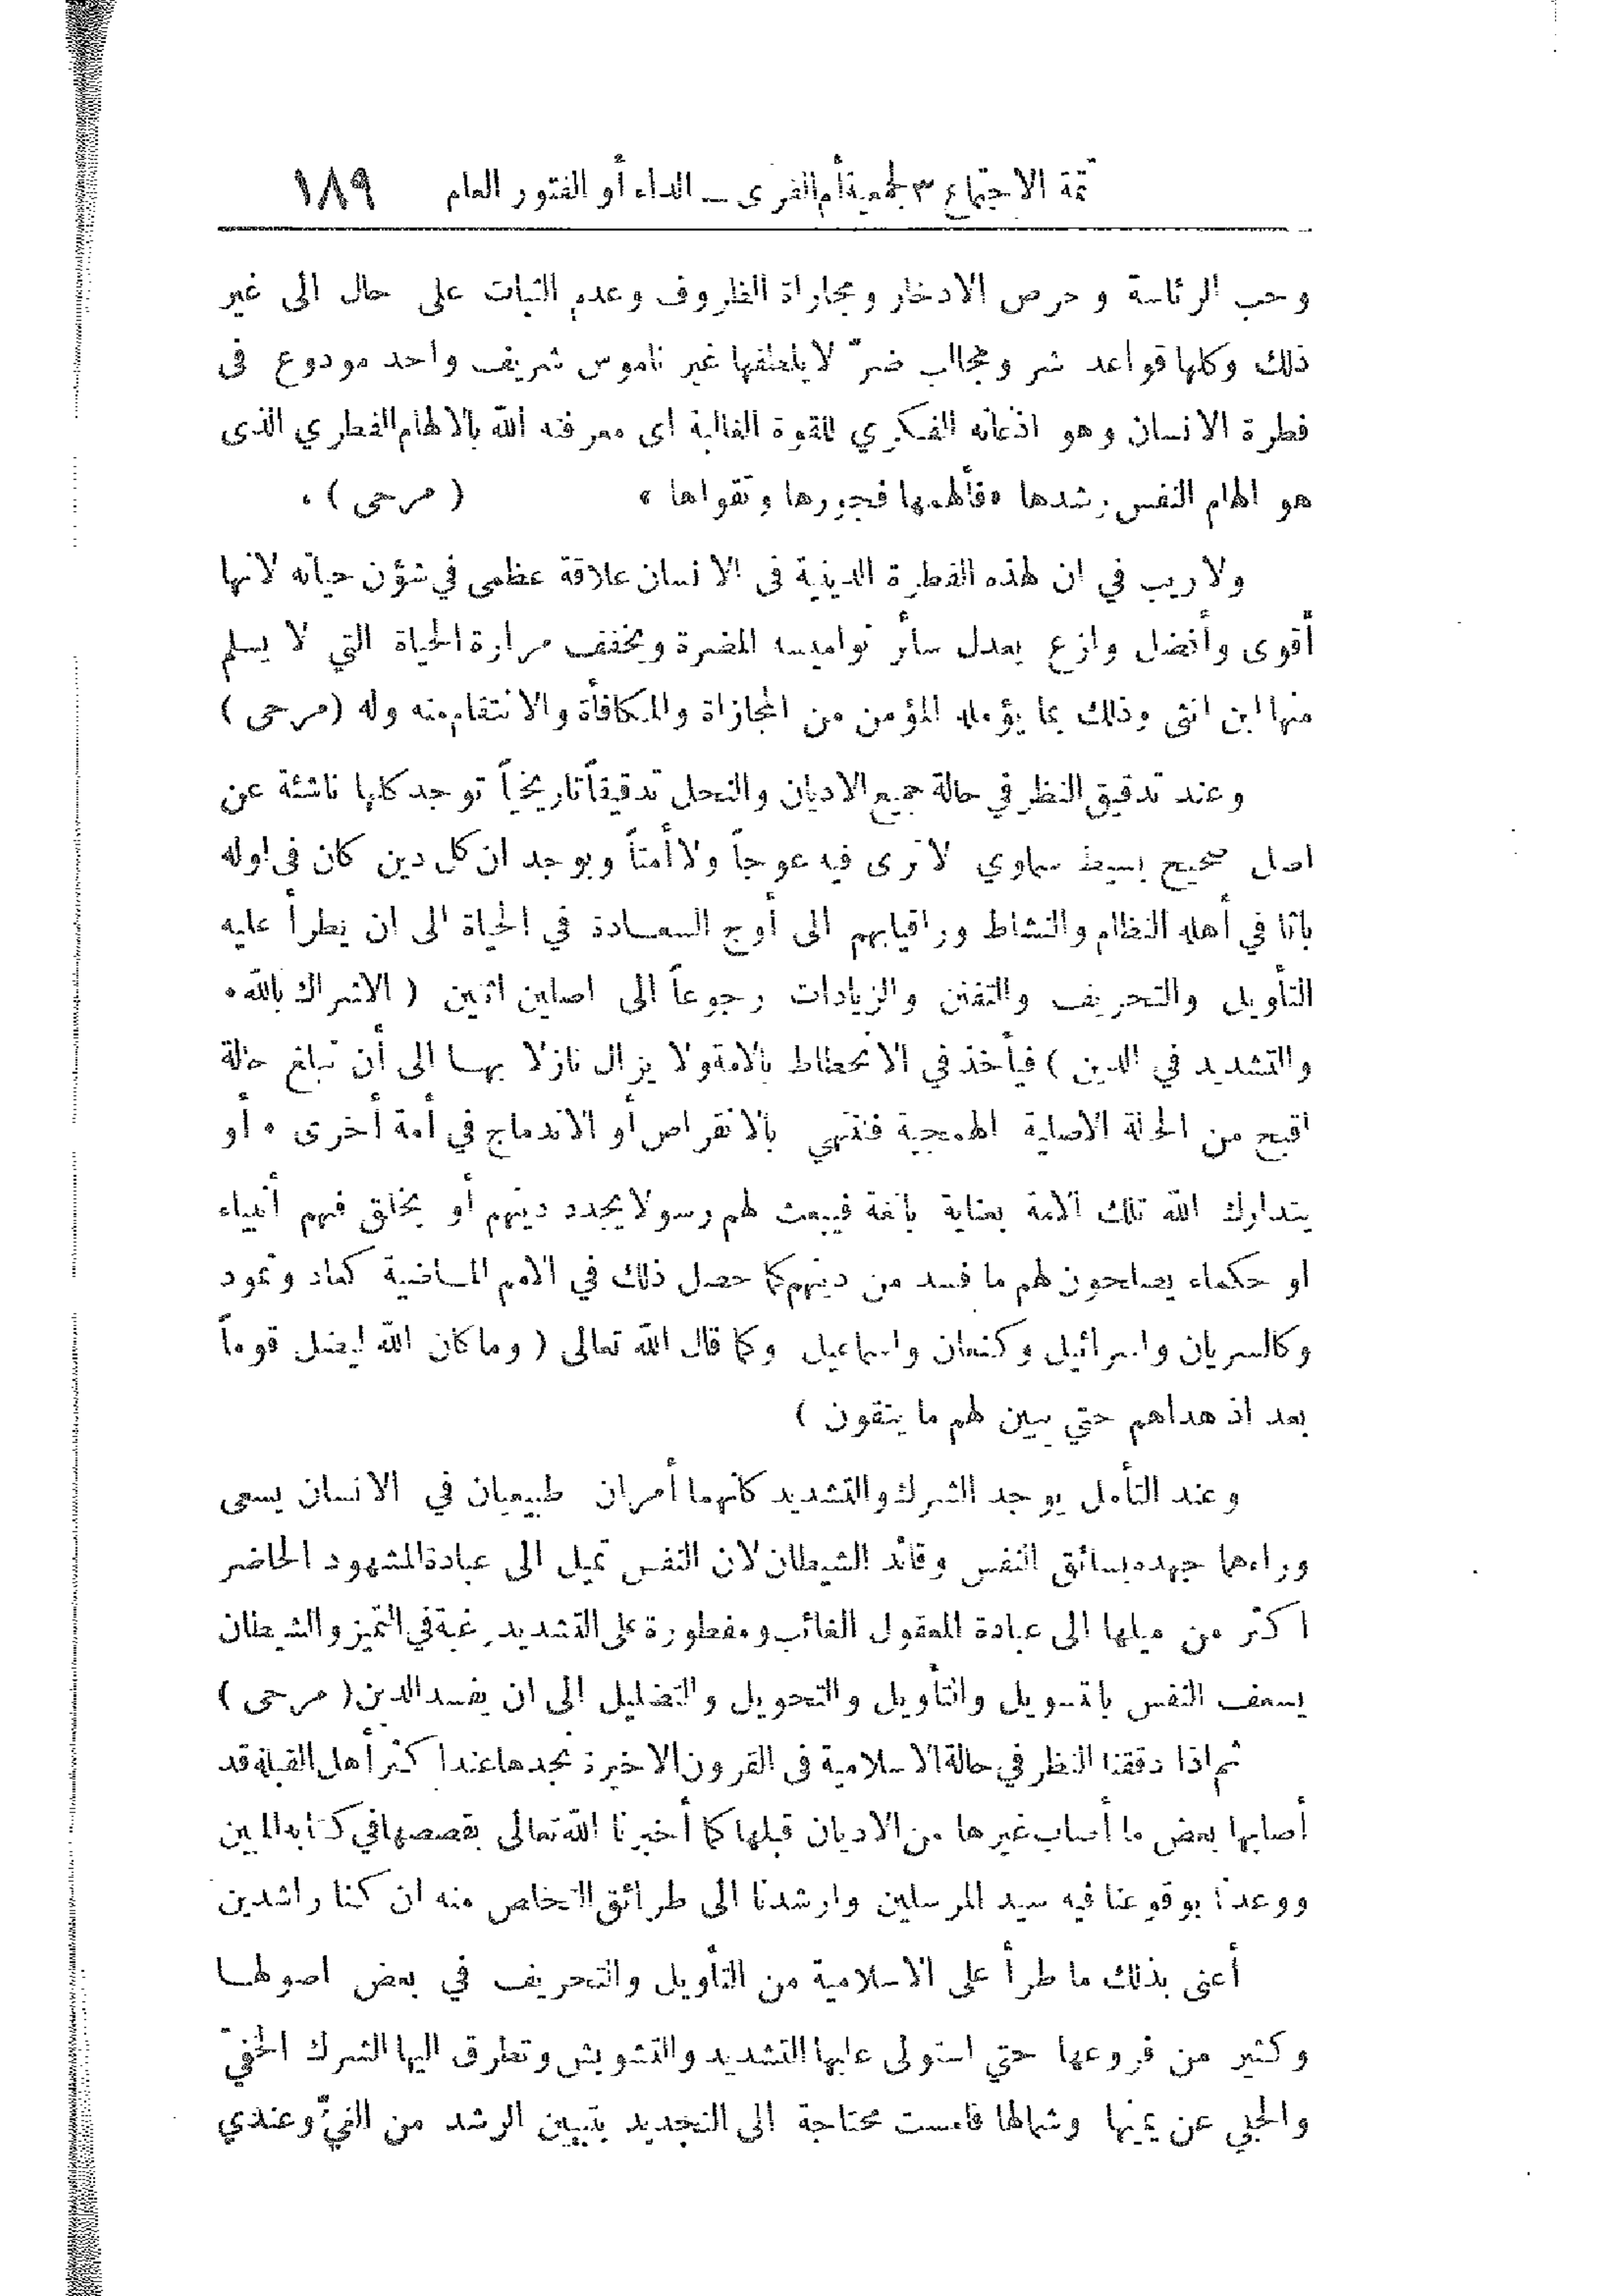 تتمة الاجتماع ٣ لجمعية أم القرى ــ الداء أو الفتور العام ١٨٩
وحب الرئاسة وحرص الادخار ومجاراة الظروف وعدم الثبات على حال الى غير
ذلك وكلها قواعد شر ومجالب ضرّ لا يلطفها غير ناموس شريف واحد مودوع فى
فطرة الانسان وهو اذعانه الفكري للقوة الغالبة اى معرفته الله بالالهام الفطري الذى
هو الهام النفس رشدها «فألهمها فجورها وتقواها» (مرحى).
ولا ريب في ان لهذه الفطرة الدينية فى الانسان علاقة عظمى في شؤن حياته لانها
أقوى وأفضل وازع يعدل سائر نواميسه المضرة ويخفف مرارة الحياة التي لا يسلم
منها ابن انثى وذلك بما يؤمله المؤمن من المجازاة والمكافأة والانتقام منه وله (مرحى)
وعند تدقيق النظر في حالة جميع الاديان والنحل تدقيقاً تاريخياً توجد كلها ناشئة عن
اصل صحيح بسيط سماوي لا ترى فيه عوجاً ولا أمتاً ويوجد ان كل دين كان فى اوله
باثا في أهله النظام والنشاط وراقيابهم الى أوج السعادة في الحياة الى ان يطرأ عليه
التأويل والتحريف والتفنن والزيادات رجوعاً الى اصلين اثنين (الاشراك بالله.
والتشديد في الدين) فيأخذ في الانحطاط بالامة ولا يزال نازلا بها الى أن تبلغ حالة
اقبح من الحالة الاصلية الهمجية فتنتهي بالانقراض أو الاندماج في أمة أخرى. أو
يتدارك الله تلك الامة بعناية بالغة فيبعث لهم رسولا يجدد دينهم أو يخلق فيهم أنبياء
او حكماء يصلحون لهم ما فسد من دينهم كما حصل ذلك في الامم الماضية كعاد وثمود
وكالسريان واسرائيل وكنعان واسماعيل وكما قال الله تعالى (وما كان الله ليضل قوماً
بعد اذ هداهم حتي يبين لهم ما يتقون)
وعند التأمل يوجد الشرك والتشديد كأنهما أمران طبيعيان في الانسان يسعى
وراءهما جهده بسائق النفس وقائد الشيطان لان النفس تميل الى عبادة المشهود الحاضر
اكثر من ميلها الى عبادة المعقول الغائب ومفطورة على التشديد رغبة في التميز والشيطان
يسعف النفس بالتسويل والتأويل والتحويل والتضليل الى ان يفسد الدين (مرحى)
ثم اذا دققنا النظر في حالة الاسلامية فى القرون الاخيرة نجدها عند اكثر أهل القبلة قد
أصابها بعض ما أصاب غيرها من الاديان قبلها كما أخبرنا الله تعالى بقصصها في كتابه المبين
ووعدنا بوقوعنا فيه سيد المرسلين وارشدنا الى طرائق التخلص منه ان كنا راشدين
أعنى بذلك ما طرأ على الاسلامية من التأويل والتحريف في بعض اصولها
وكثير من فروعها حتي استولى عليها التشديد والتشويش وتطرق اليها الشرك الخفيّ
والجلي عن يمينها وشمالها فامست محتاجة الى التجديد بتبيين الرشد من الغيّ وعندي